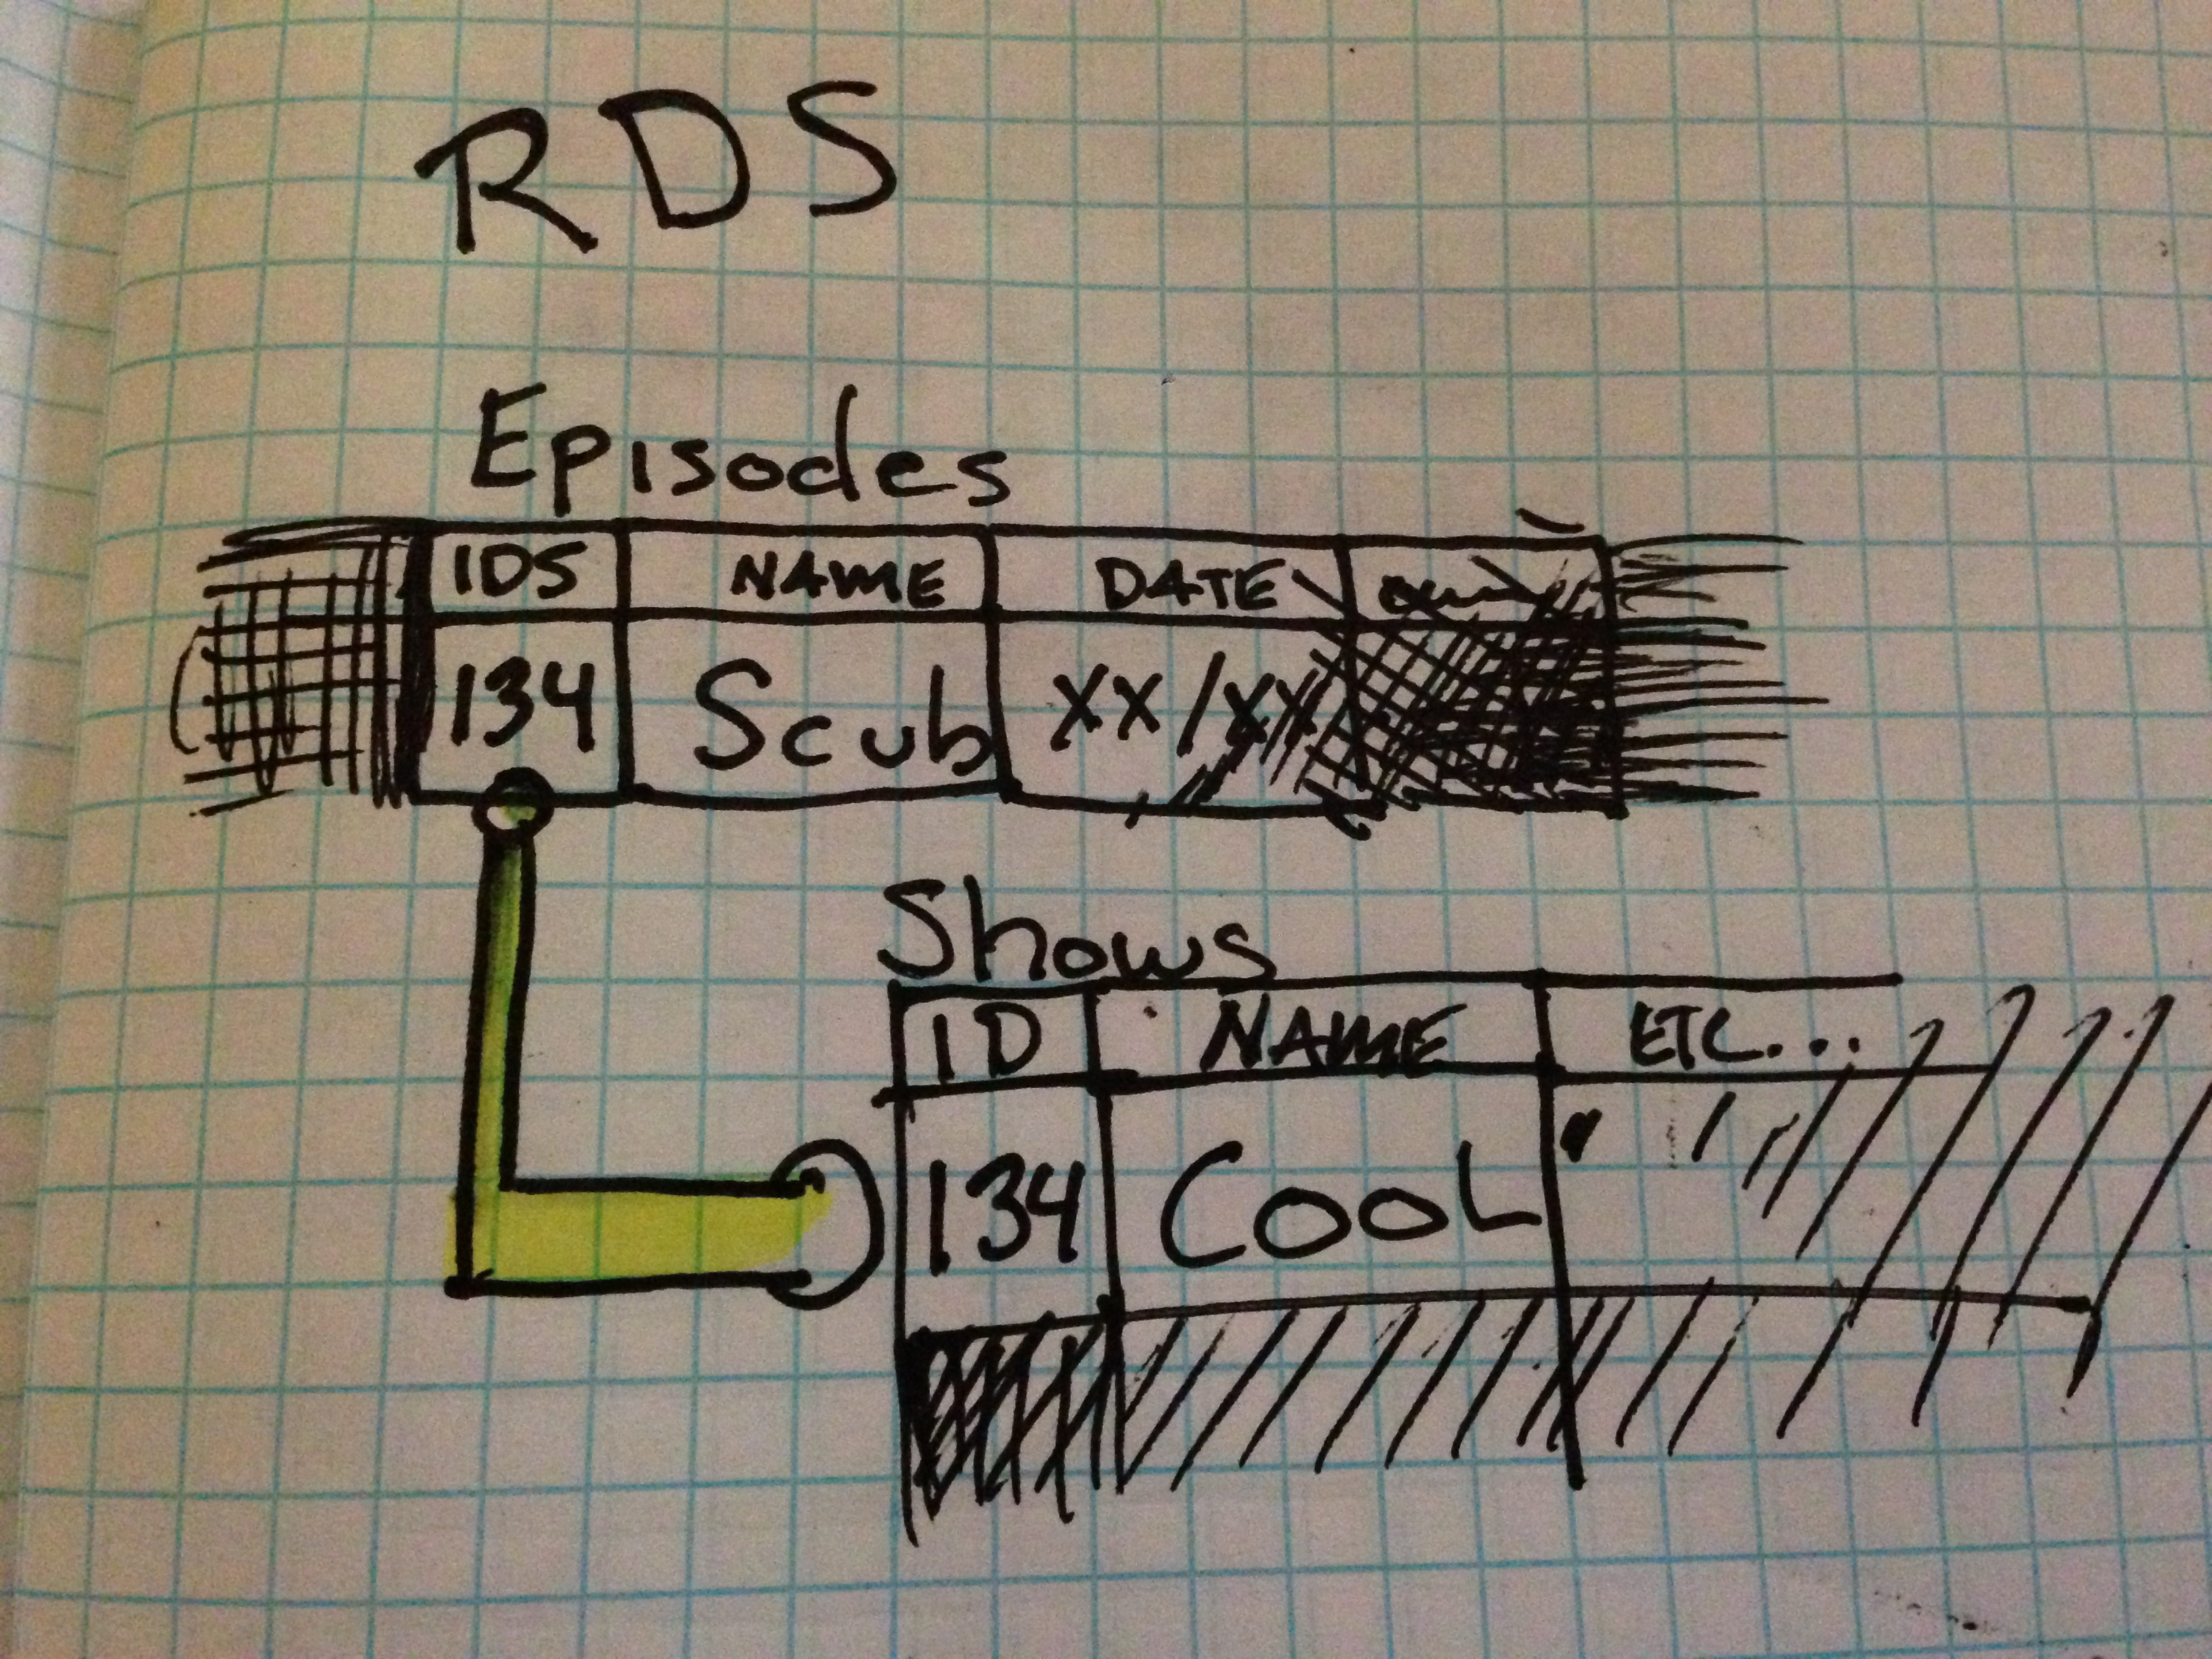 RDS
Episodes
IDS NAME DATE
134 Scub xx/xx
Shows
ID NAME ETC...
134 COOL